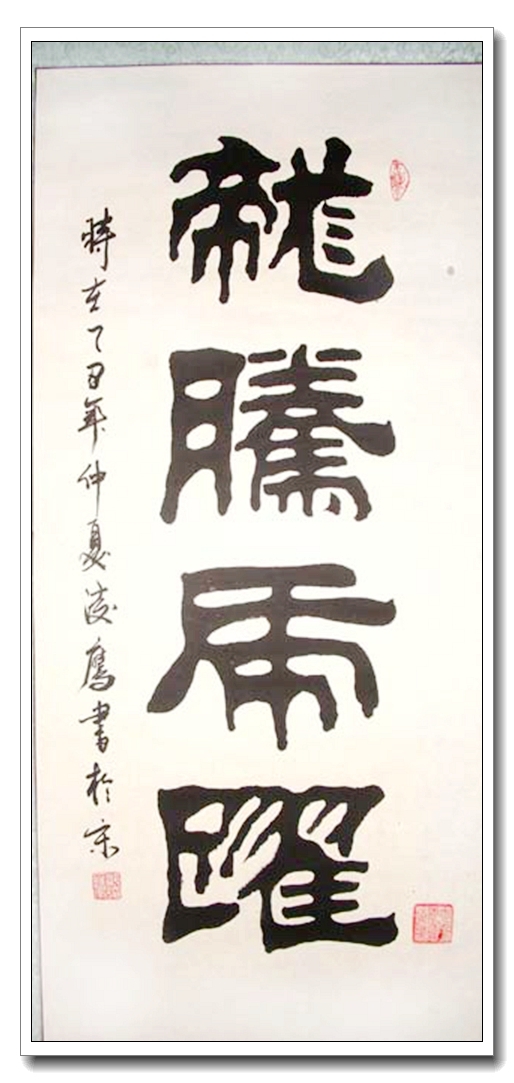 龍騰虎躍
時在丁丑年仲夏凌鷹書於京